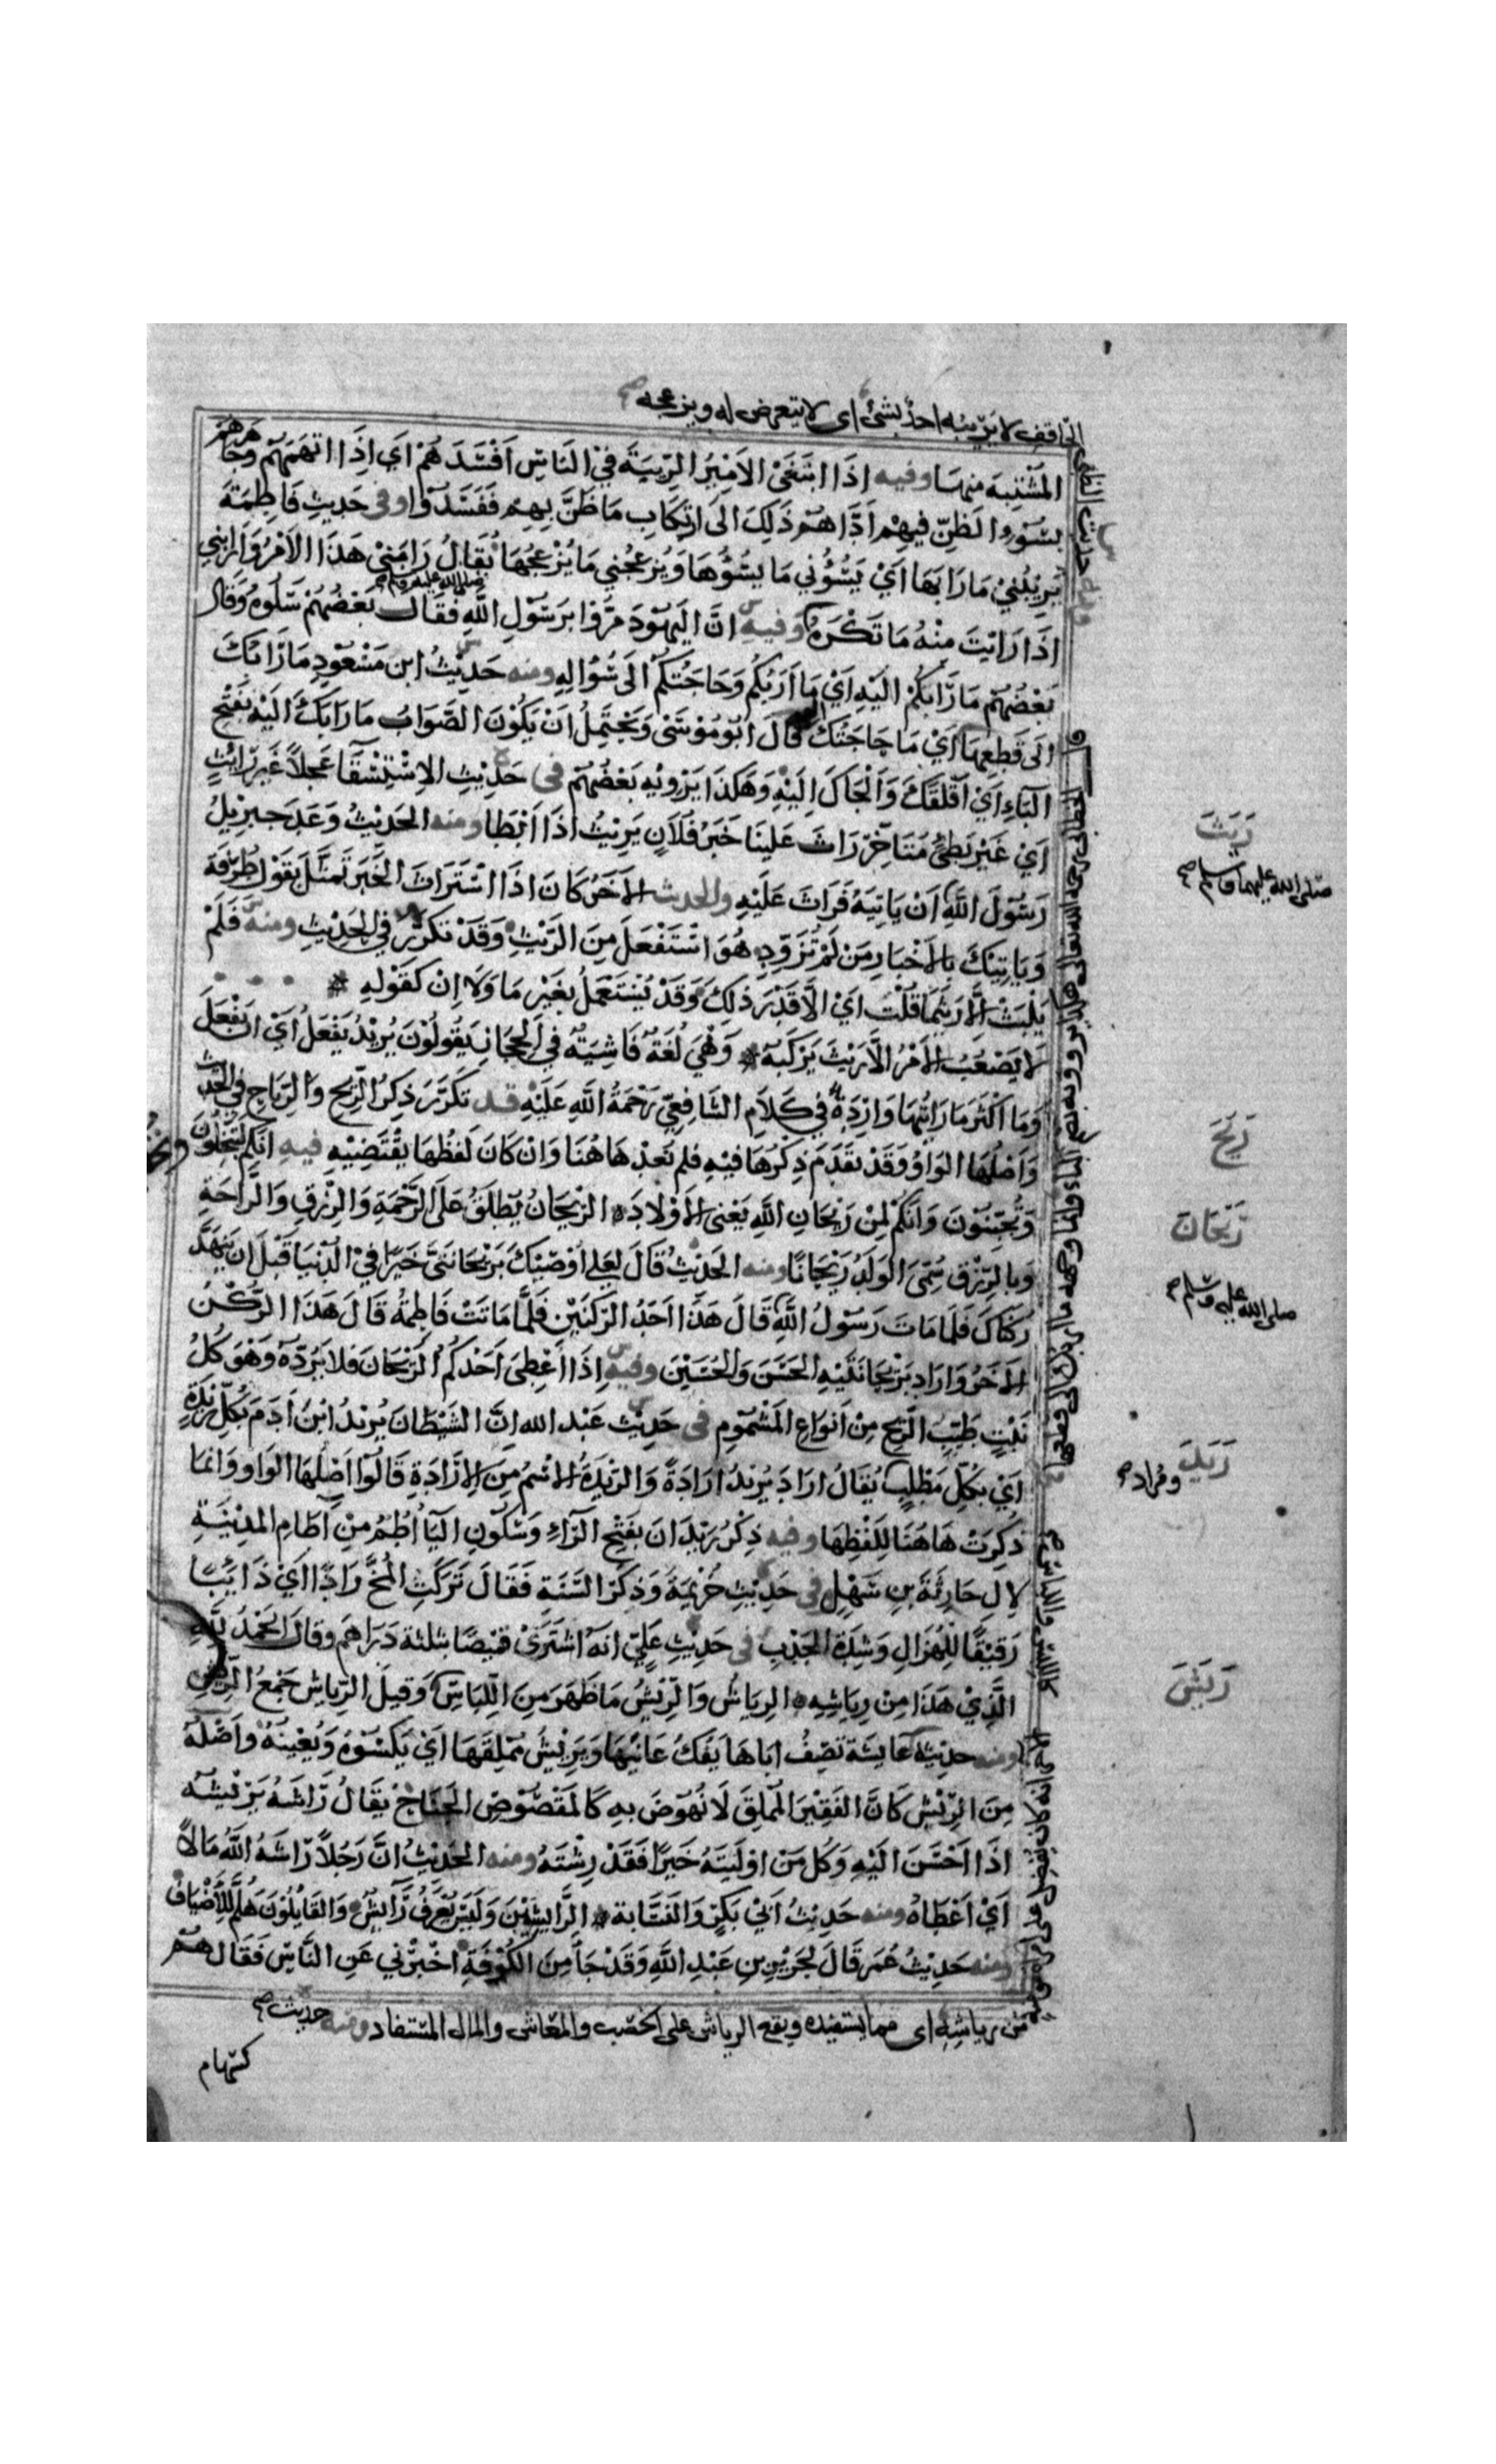 الحاقف لا يَرِيبُه احدٌ بشئ اى لا يتعرض له ويزعجه صح
المشْتبِهَ منهَا وفيه اِذَا ابتَغَىْ الاَمِيْرُ الرِّيبَةَ فيْ النَاسِ اَفْسَدَهُمْ اَي اِذَا اتهَمَهُمْ وجَاهَرَهُمْ
بسُوْءِ الظَنّ فيهِمْ اَدَّاهُمْ ذَلِكَ الىَ ارتكَابِ مَا ظَنَّ بِهِمْ فَفَسَدُوْا وفى حَدِيثِ فَاطِمَةَ
يُرِيْبُنيْ مَا رَابَهَا اَيْ يَسُؤُني مَا يسُؤُهَا وَيُزعجُني مَا يُزْعجُهَا يُقَالُ رَابَنيْ هَذَا الاَمْرُ وَاَرَابَنِي
صلى الله عليه وسلم
اذَا رَايْتَ منْهُ مَا تَكْرَهُ وَفيهِ انَّ اليَهُوْدَ مَرُّوْا برَسُوْلِ اللّهِ فقَال بَعْضُهُمْ سَلُوهُ وَقَال
بَعْضُهُمْ مَا رَابَكُمْ اليَهِ اَيْ مَا اَرَبُكُمْ وَحَاجَتُكمْ الَى سُؤالِهِ ومنه حَدِيْثُ ابن مَسْعُوْدٍ مَا رَابُكَ
الىَ قَطعِهَا اَيْ مَا حَاجَتُكَ قَالَ ابُوْ مُوْسَىْ وَيَحْتَمِلُ انْ يَكُوْنَ الصَّوَابُ مَا رَابَكَ الَيْهِ بفَتْحِ
البَاءِ اَيْ اَقْلَقَكَ وَاَلْجَاكَ اِلَيْهِ وَهَكذَا يَرْوِيْهِ بَعْضُهُمْ فى حَدِيْثِ الاِسْتِسْقَا عَجلاً غَيرَ رَائثٍ
اَيْ غَيْر بَطيءٍ مُتَاَخِّرٍ رَاثَ عَلينَا خَبَرُ فُلاَنٍ يَرِيْثُ اذَا اَبْطَا ومنه الحَدِيْثُ وَعَدَ جبرِيلُ
رَسُوْلَ اللَّهِ اَنْ يَاتيَهُ فَرَاثَ عَلَيْهِ والحديث الاَخَرُ كَانَ اذَا اسْتَرَاثَ الخَبَرَ تَمثَّلَ بقَوْل طَرَفَةَ
وَيَاتِيْكَ بالاَخْبَارِ مَنْ لَمْ تُزَوِّدِ هُوَ اسْتَفْعَلَ مِنَ الرَّيْثِ وَقَدْ تكرَّرَ في الحَدِيْثِ ومنه فَلَمْ
يَلْبَثْ اِلاَّ رَيثَمَا قُلْتَ اَيْ الاَّ قَدْرَ ذلِكَ وَقَدْ يُسْتَعمَلُ بغَيْرِ مَا وَلاَ اِنْ كقَوْلِهِ
لاَ يَصْعُبُ الاَمْرُ الاَّ رَيْثَ يَرْكَبُهُ وَهْيَ لُغَةٌ فَاشِيَةٌ في الحجَازِ يَقُولُوْنَ يُرِيْدُ يَفْعَلُ اَيْ ان يَفْعَلَ
وَمَا اَكْثَرَ مَا رَاَيْتُهَا وَارِدَةً في كَلاَمِ الشَافِعِيّ رَحْمَةُ اللَّهِ عَلَيْهِ قد تَكَرَّرَ ذِكرُ الرِّيْحِ وَالرِّيَاحِ في الحَدِيْثِ
وَاَصْلُهَا الوَاوُ وَقَدْ تقَدَمَ ذِكْرُهَا فيْهِ فلم نُعدْهَا هُنَا وَانْ كانَ لَفظُهَا يقْتَضِيْهِ فيهِ انكُم لتُبَخِّلُوْنَ
وَتُجَبِّنُوْنَ وَانَكُمْ لَمِنْ رَيْحَانِ اللَّهِ يَعْنى الاَوْلاَدَ الرَّيْحَانُ يُطْلَقُ عَلىَ الرَّحْمَةِ وَالرِّزْقِ وَالرَّاحَةِ
وَبالرِّزْقِ سُمِّىَ الوَلَدُ رَيْحَانًا ومنه الحَدِيْثُ قَالَ لعَلي اُوْصِيْكَ برَيْحَانَتَيَّ خَيرًا فيْ الدُّنيَا قَبْلَ ان يَنهَدَّ
رُكنَاكَ فَلمَا مَاتَ رَسُوْلُ اللَّهِ قَالَ هَذَا اَحَدُ الرُّكنَيْنِ فَلمَّا مَاتَتْ فَاطِمَةُ قَالَ هَذَا الرُّكْنُ
الاَخَرُ وَاَرَادَ برَيْحَانَتَيْهِ الحَسَنَ وَالحُسَيْنَ وفيهِ اِذَا اُعْطِىَ اَحَدُكُمُ الرَّيْحَانَ فلاَ يَرُدَّهُ وَهْوَ كُلُ
نَبْتٍ طَيّبِ الرِّيْحِ مِنْ اَنوَاعِ المَشْمُوْمِ فى حَدِيْثِ عَبْدِ الله اِنَّ الشَيْطَانَ يُرِيْدُ ابْنَ اَدَمَ بكُلِّ رِيْدَةٍ
اَيْ بكُلِّ مَطْلَبٍ يُقَالُ اَرَادَ يُرِيْدُ ارَادَةً وَالرِّيْدَةُ الاِسْمُ مِنَ الاِرَادَةِ قَالُوْا اَصْلُهَا الوَاو وَانمَا
ذُكِرَتْ هَاهُنَا لِلَفْظِهَا وفيه ذِكْرُ رَيْدَانَ بفَتْحِ الرَّاءِ وَسُكُوْنِ اليَاءِ اُطُمٌ مِنْ اَطَامِ المَدِيْنَةِ
لاِلِ حَارِثَةَ بن سَهْلٍ فى حَدِيْثِ خُزَيْمَةَ وَذِكرَ السَّنَةِ فَقَالَ تَرَكَتِ المُخَّ رَارًا اَيْ ذَائِبًا
رَقِيْقًا لِلْهُزَالِ وَشِدَّةِ الجَدْبِ فى حَدِيْثِ عَليّ انهُ اشتَرَىْ قَمِيْصًا بثلثة دَرَاهِمَ وقَال الحَمْدُ لِلَّهِ
الَّذِيْ هَذَا مِنْ رِيَاشِهِ الرِّيَاشُ وَالرِّيْشُ مَا ظَهَرَ مِنَ اللِّبَاسِ وَقِيلَ الرِّيَاش جَمْعُ الرِّيْشِ
ومنه حديث عَايشَةَ تَصِفُ ابَاهَا يَفُكُّ عَانيَهَا وَيَرِيْشُ مُمْلِقَهَا اَيْ يَكسُوْهُ وَيُعِيْنُهُ وَاَصْلُهُ
مِنَ الرِّيْشِ كَانَ الفَقِيْرَ المُمْلِقَ لاَ نُهُوْضَ بهِ كَالمَقْصُوْصِ الجَنَاحِ يقَالُ رَاشَهُ يَرِيْشُهُ
اذَا اَحْسَنَ الَيْهِ وَكُلُ مَنْ اَوْلَيْتَهُ خَيرًا فَقَدْ رِشْتَهُ ومنه الحَدِيْثُ انَّ رَجُلاً رَاشَهُ اللَّهُ مَالاً
اَيْ اَعْطَاهُ ومنه حَدِيْثُ اَبيْ بَكرٍ وَالنسَّابَةِ الرَّايشِيْنَ وَلَيسَ يُعْرَفُ رَايِشٌ وَالقَايِلُوْنَ هَلُمَّ لِلْاَضْيَافْ
ومنه حَدِيْثُ عُمَرَ قَالَ لجَرِيْرِ بنِ عَبْدِ اللَّهِ وَقَدْ جَاَ مِنَ الكُوْفَةِ اخْبِرْني عَنِ النَّاسِ فَقَال هُمْ
من رياشِهِ اى مما يستفيده ويقع الرياش على الخصب والمعاش والمال المستفاد ومنه حديث صح
كسهام
رَيَثَ
صلى الله عليهما وسلم صح
رَيَحَ
رَيْحَان
صلى الله عليه وسلم صح
رَيَدَ
رَيَشَ